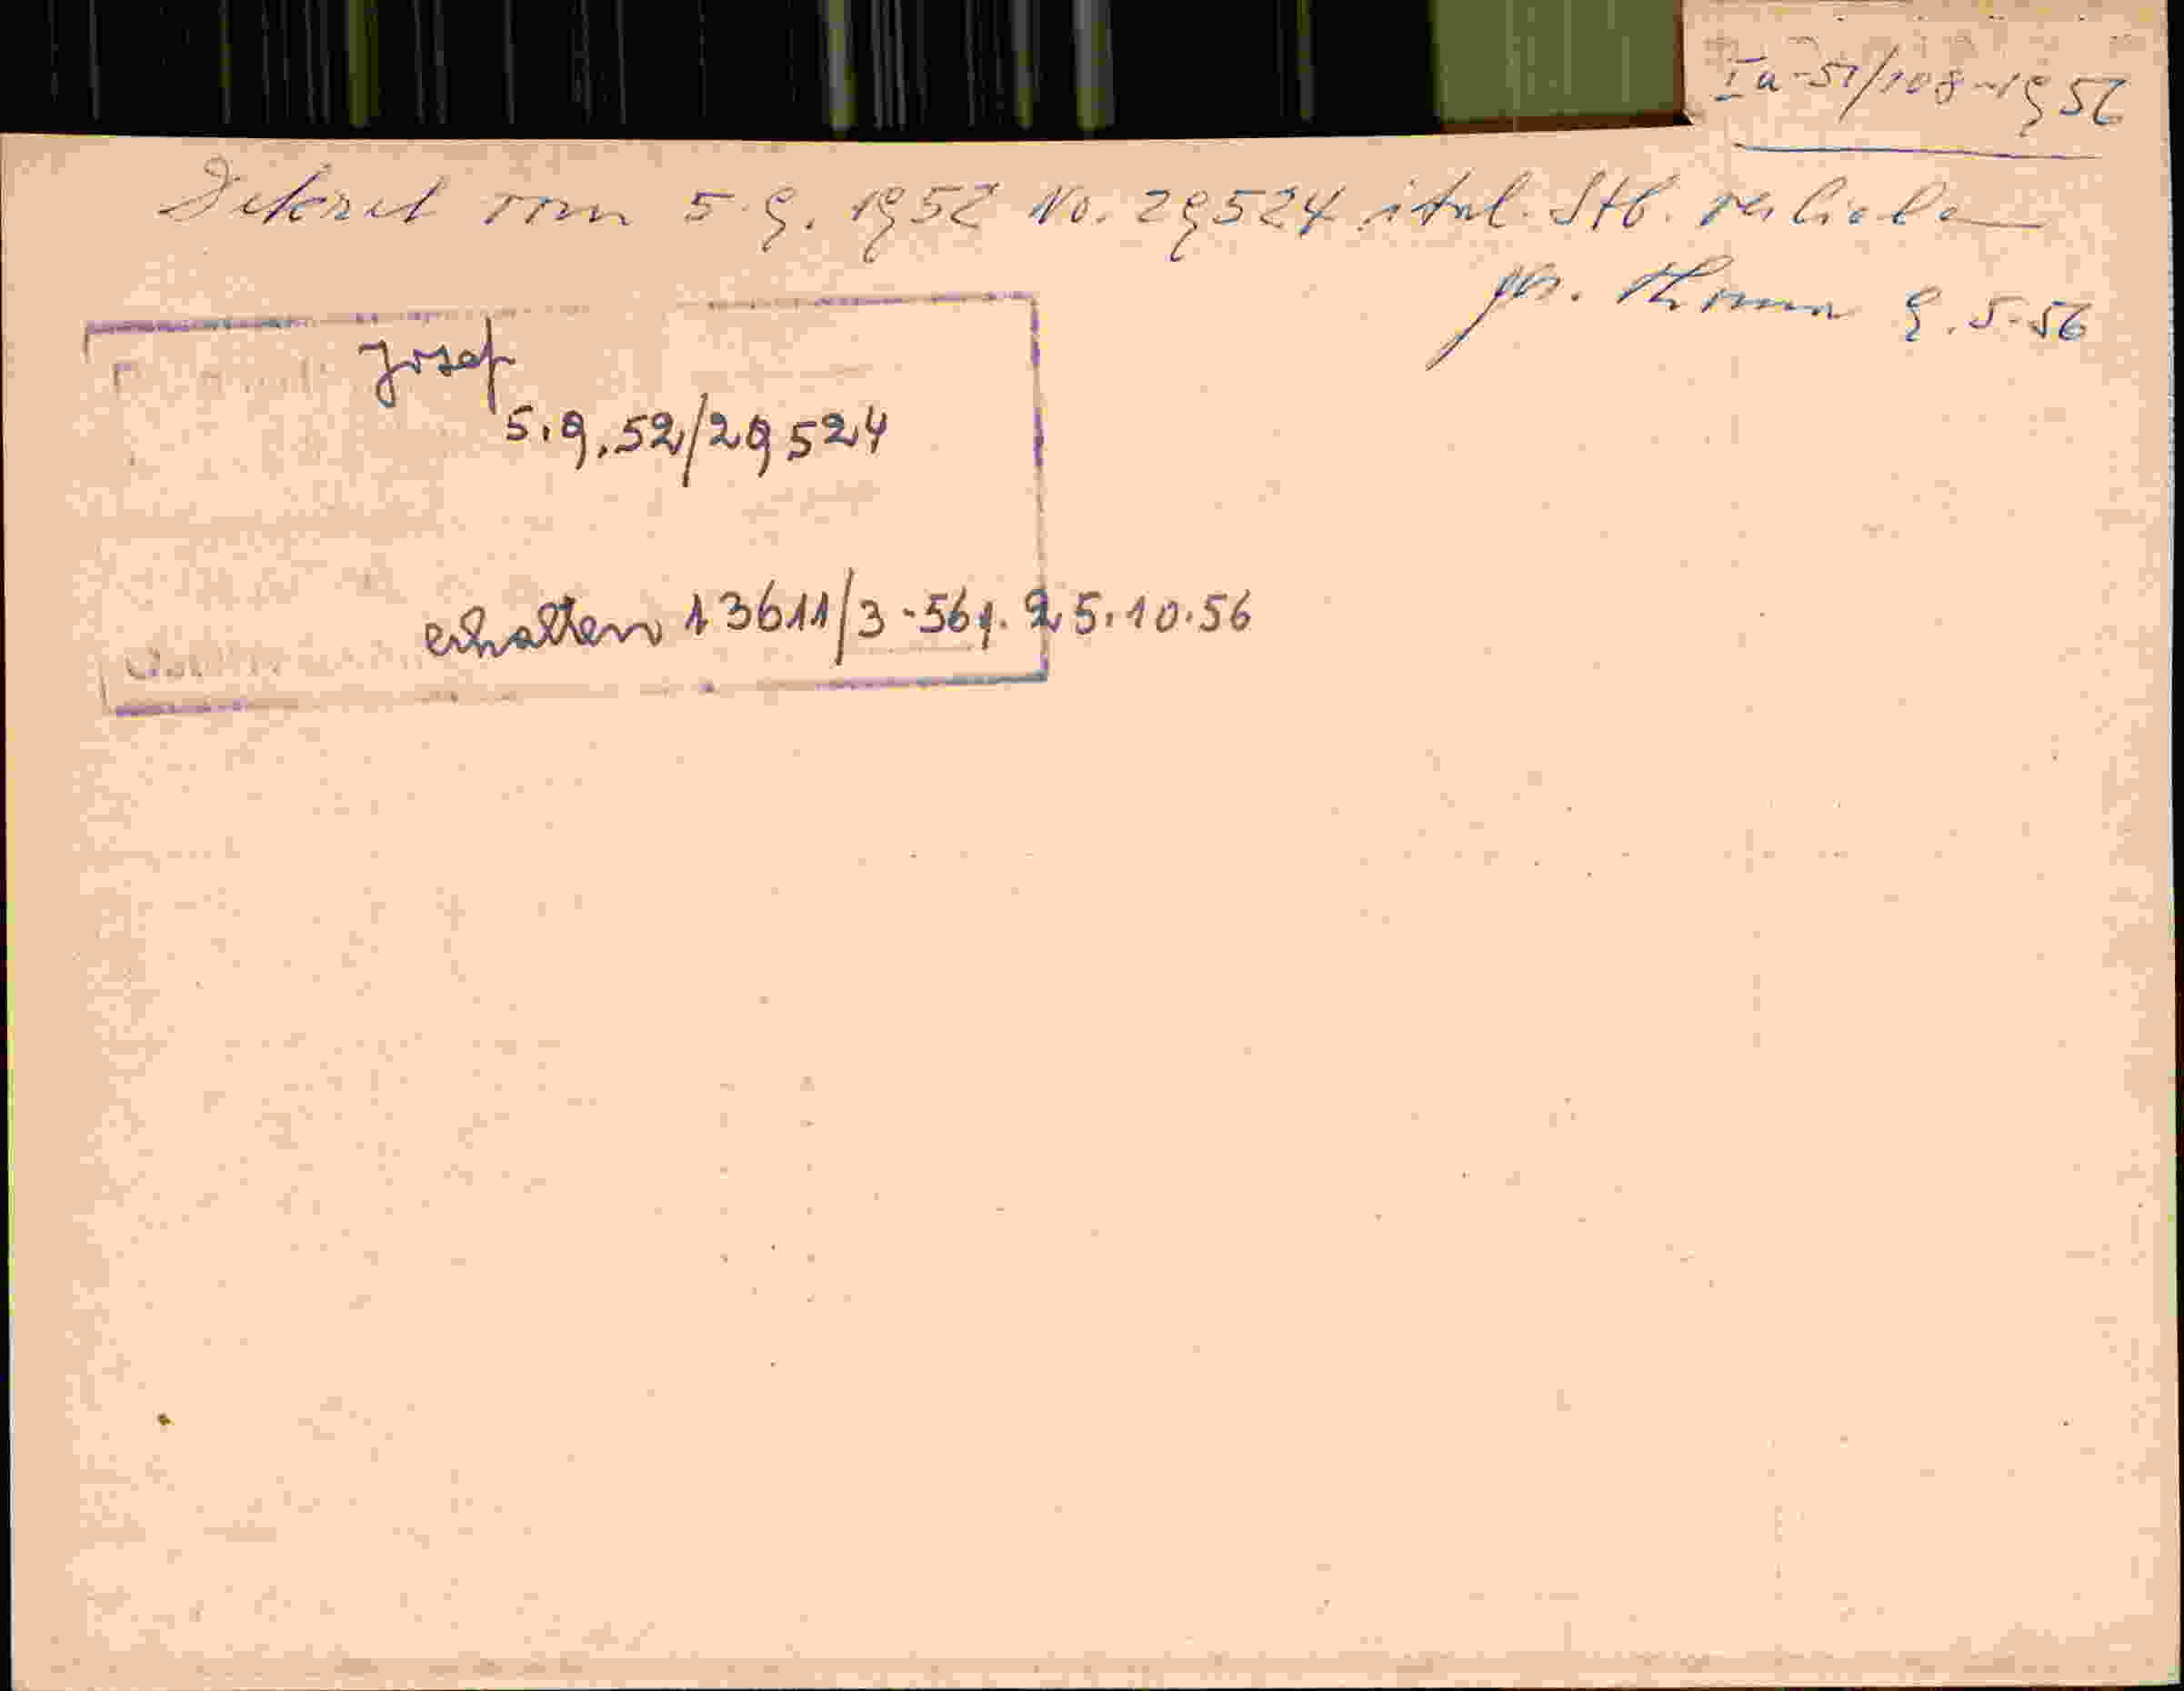 Ia-51/108-1956
Dekret vom 5.9.1952 No. 29524 ital. Stb. verliehen
9.5.56
Josef
5.9.52/29524
erhalten 13611/3-56 25.10.56